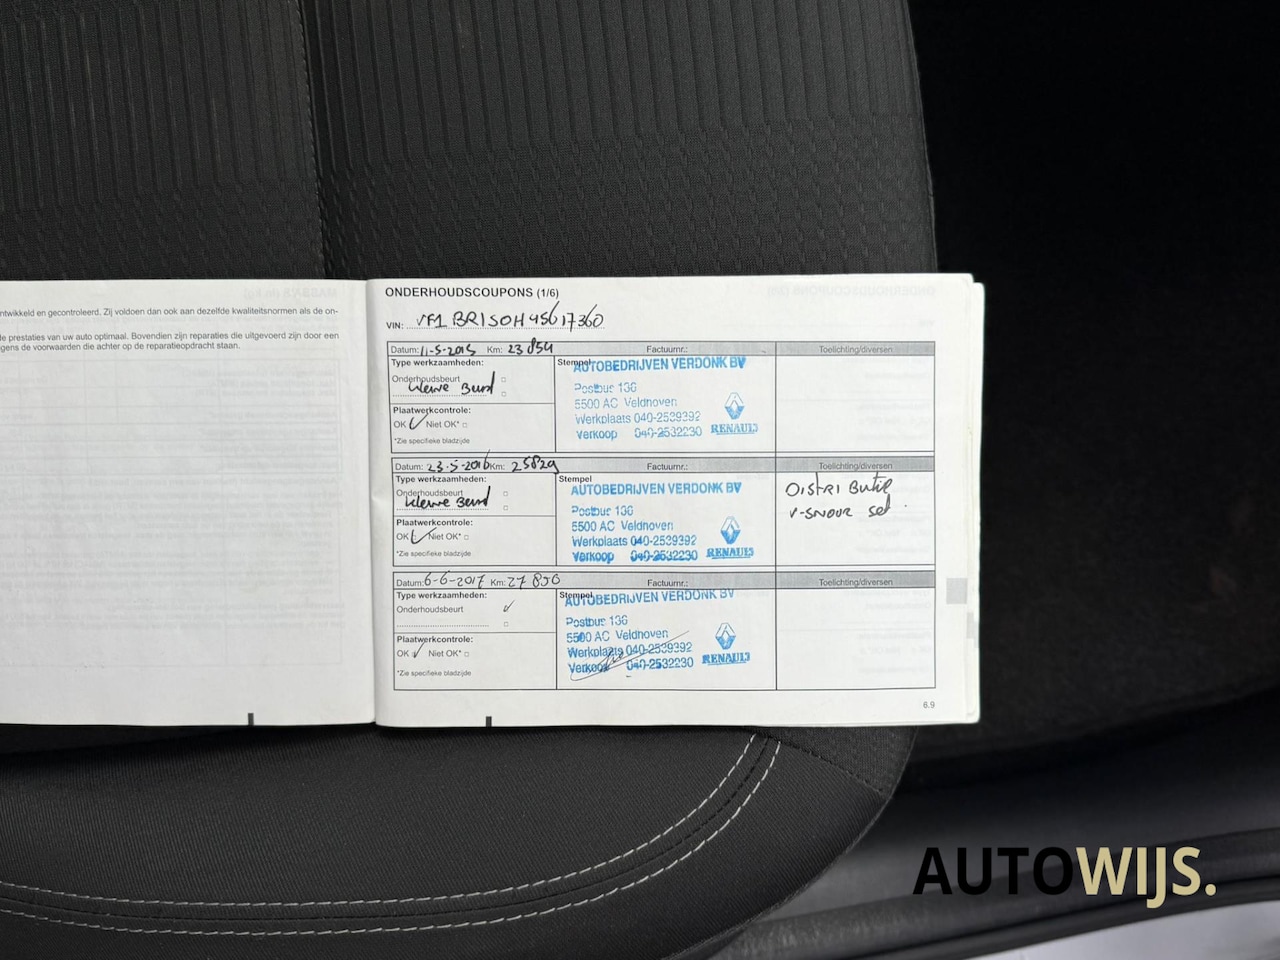 ntwikkeld en gecontroleerd. Zij voldoen dan ook aan dezelfde kwaliteitsnormen als de on-
le prestaties van uw auto optimaal. Bovendien zijn reparaties die uitgevoerd zijn door een
gens de voorwaarden die achter op de reparatieopdracht staan.
ONDERHOUDSCOUPONS (1/6)
VIN: VF1BR1S0H45617360
Datum: 11-5-2015 Km: 23854 Factuurnr.: Toelichting/diversen
Type werkzaamheden:
Onderhoudsbeurt
kleine Beurt
Plaatwerkcontrole:
OK Niet OK*
*Zie specifieke bladzijde
Stempel
AUTOBEDRIJVEN VERDONK BV
Postbus 136
5500 AC Veldhoven
Werkplaats 040-2539392
Verkoop 040-2532230
RENAULT
Datum: 23-5-2016 Km: 25829 Factuurnr.: Toelichting/diversen
Type werkzaamheden:
Onderhoudsbeurt
kleine Beurt
Plaatwerkcontrole:
OK Niet OK*
*Zie specifieke bladzijde
Stempel
AUTOBEDRIJVEN VERDONK BV
Postbus 136
5500 AC Veldhoven
Werkplaats 040-2539392
Verkoop 040-2532230
RENAULT
Distributie
V-snour set
Datum: 6-6-2017 Km: 27 856 Factuurnr.: Toelichting/diversen
Type werkzaamheden:
Onderhoudsbeurt
Plaatwerkcontrole:
OK Niet OK*
*Zie specifieke bladzijde
Stempel
AUTOBEDRIJVEN VERDONK BV
Postbus 136
5500 AC Veldhoven
Werkplaats 040-2539392
Verkoop 040-2532230
RENAULT
6.9
AUTOWIJS.